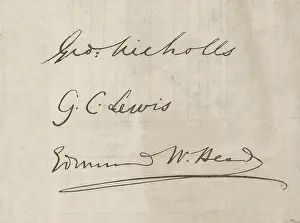 Geo: Nicholls
G. C. Lewis
Edmund W. Head